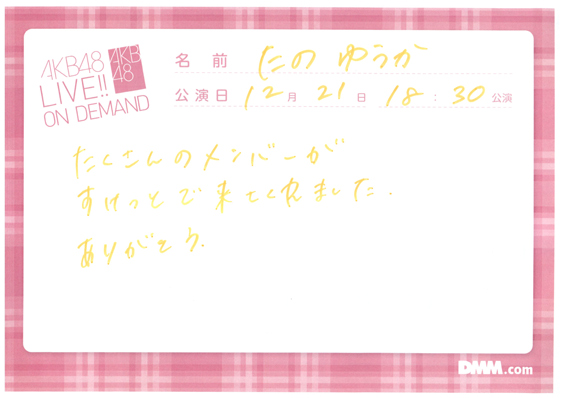 AKB48
LIVE!!
ON DEMAND
AKB
48
名前 たの ゆうか
公演日 12月 21日 18:30公演
たくさんのメンバーが
すけっとで来てくれました.
ありがとう.
DMM.com